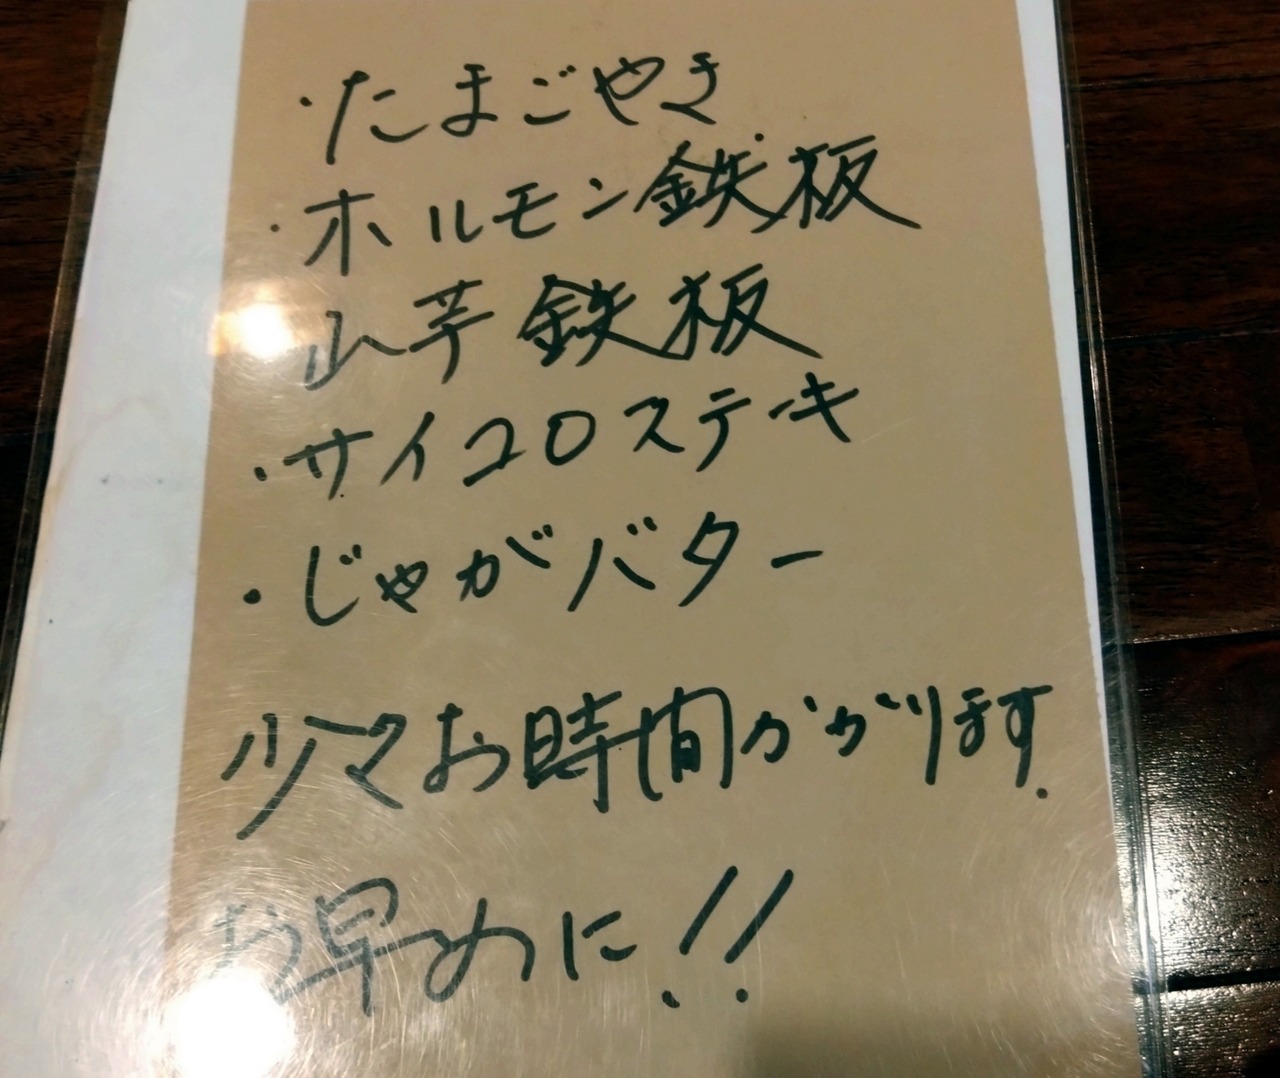 ・たまごやき
・ホルモン鉄板
山芋鉄板
・サイコロステーキ
・じゃがバター
少々お時間かかります.
お早めに!!